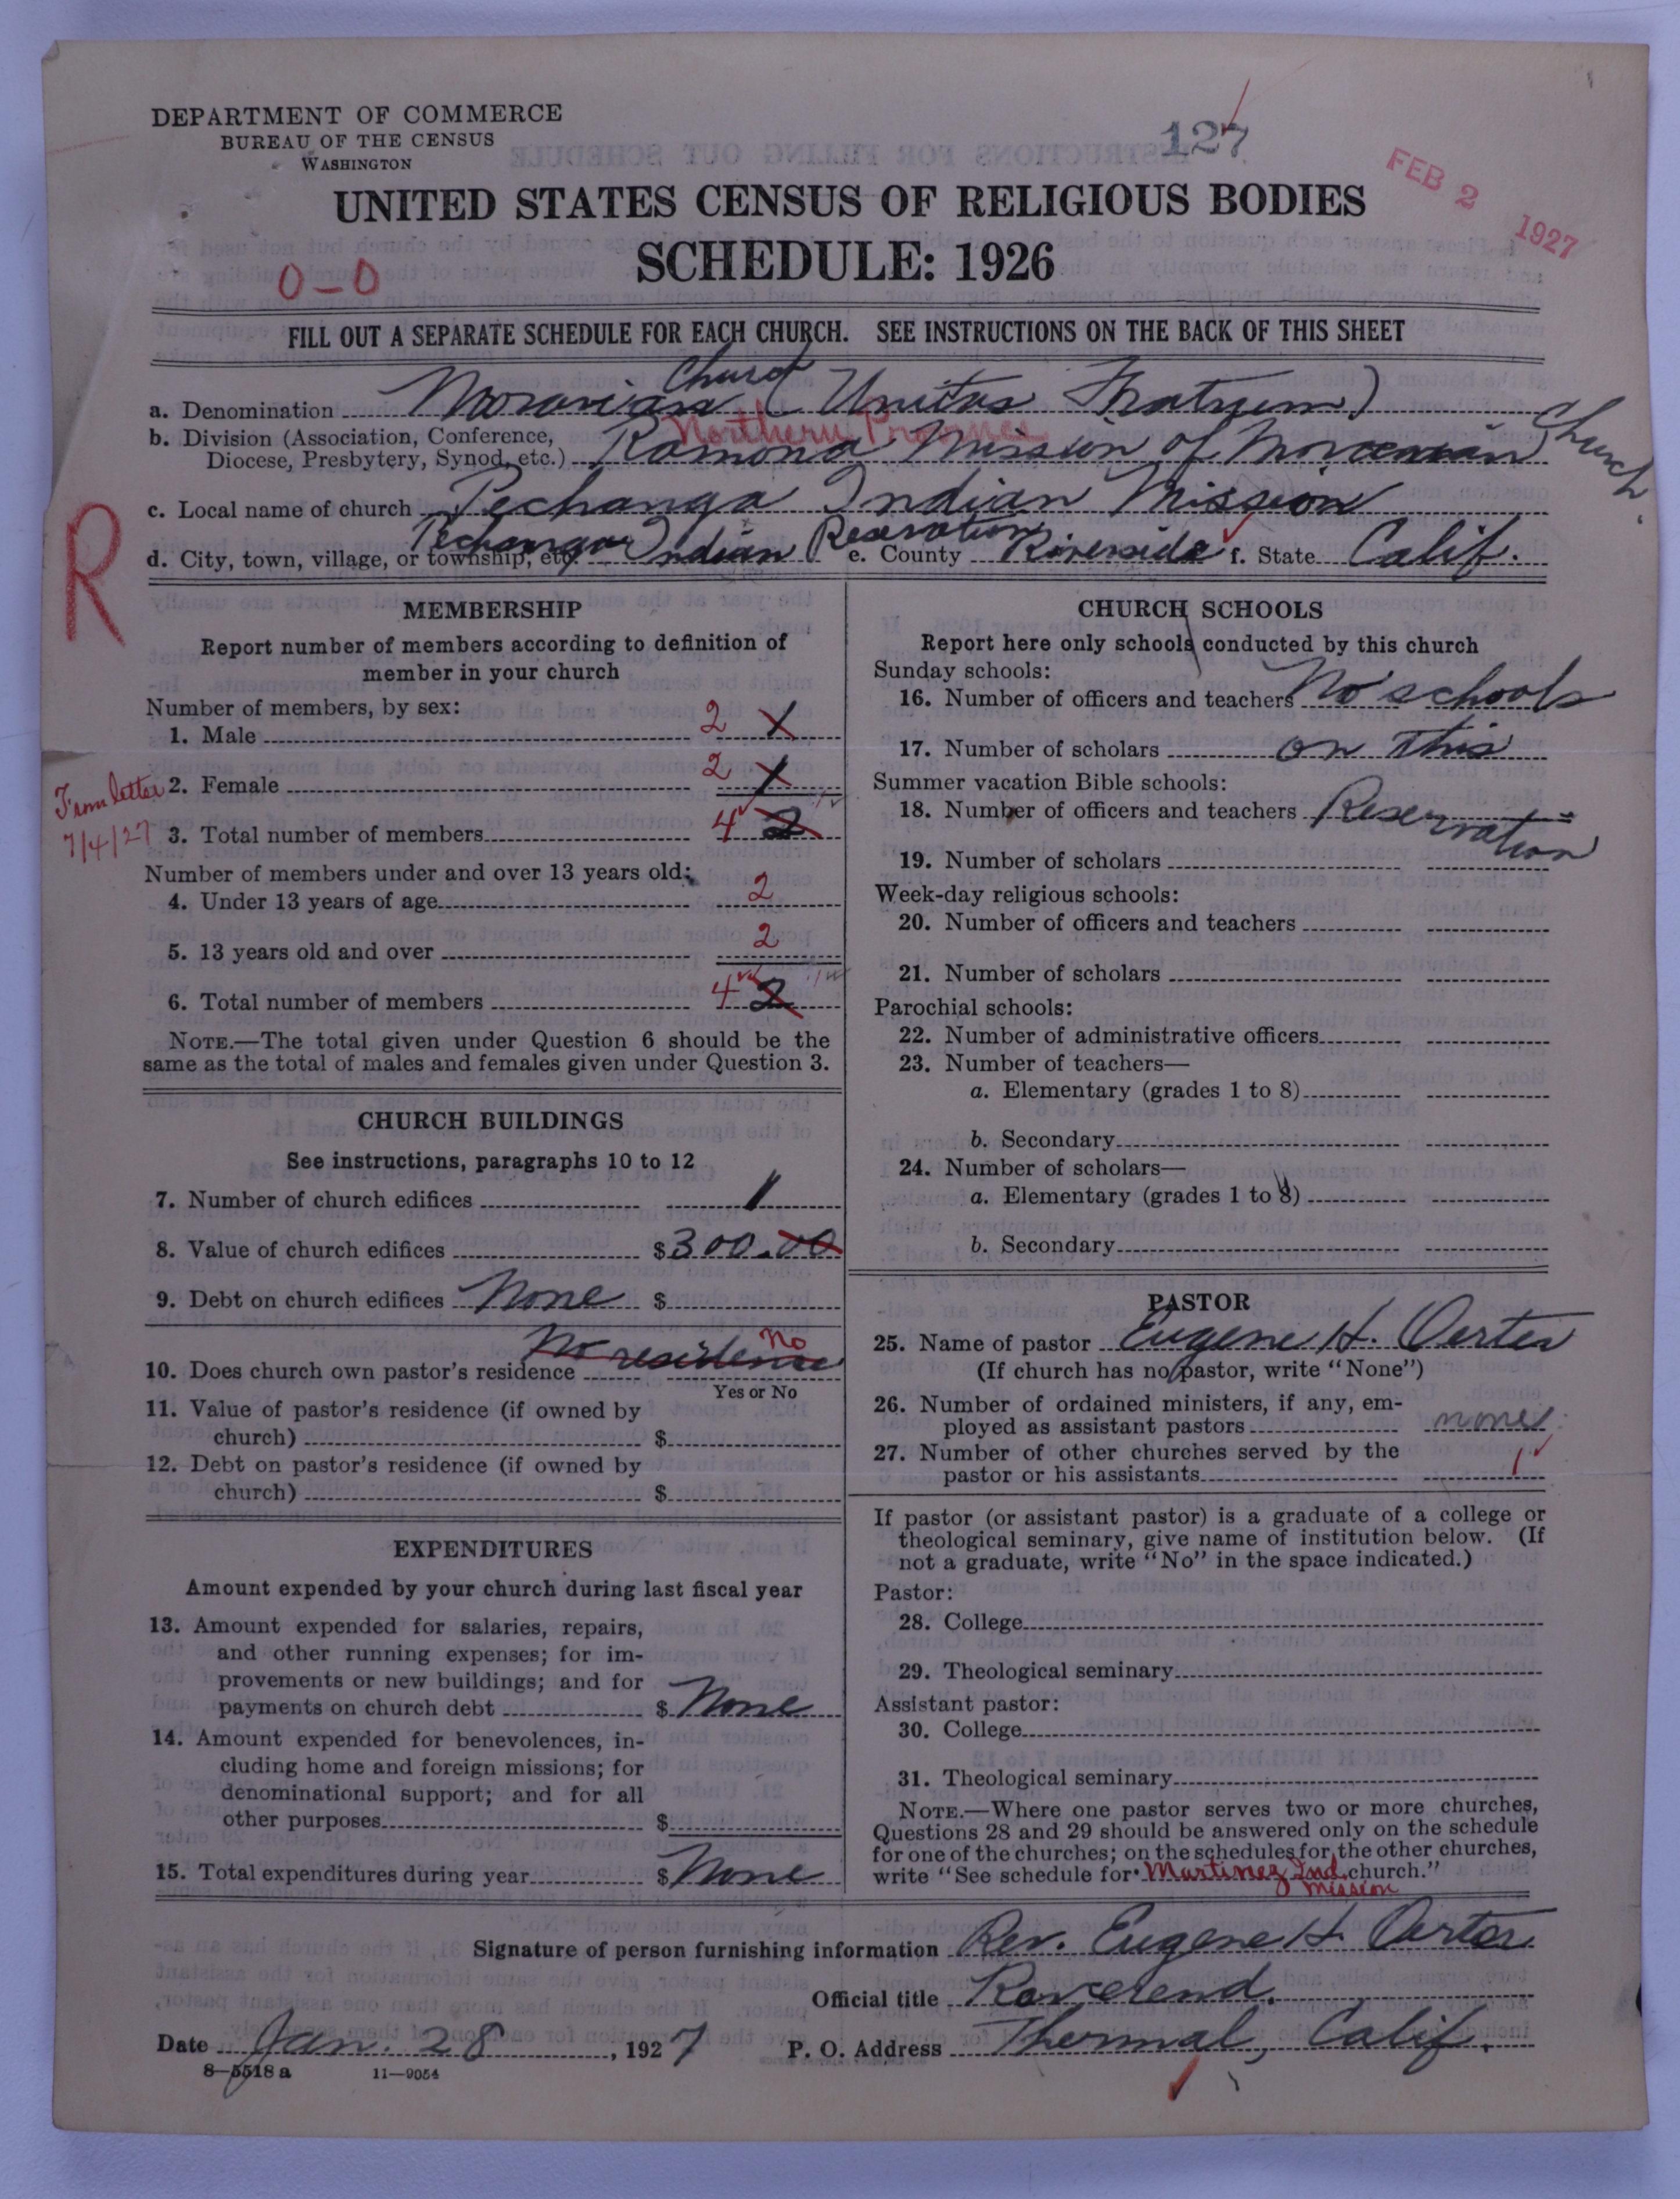 DEPARTMENT OF COMMERCE
BUREAU OF THE CENSUS
WASHINGTON
127
FEB 2 1927
UNITED STATES CENSUS OF RELIGIOUS BODIES
SCHEDULE: 1926
0-0
FILL OUT A SEPARATE SCHEDULE FOR EACH CHURCH. SEE INSTRUCTIONS ON THE BACK OF THIS SHEET
a. Denomination Moravian Church (Unitas Fratrum)
Northern Province
b. Division (Association, Conference,
Diocese, Presbytery, Synod, etc.) Ramona Mission of Moravian Church.
R
c. Local name of church Pechanga Indian Mission
d. City, town, village, or township, etc. Pechanga Indian Reservation e. County Riverside f. State Calif.
MEMBERSHIP
Report number of members according to definition of
member in your church
Number of members, by sex:
1. Male 2 1
2. Female 2 1
From letter
7/4/27
3. Total number of members 4 2
Number of members under and over 13 years old:
4. Under 13 years of age 2
5. 13 years old and over 2
6. Total number of members 4 2
NOTE.—The total given under Question 6 should be the
same as the total of males and females given under Question 3.
CHURCH BUILDINGS
See instructions, paragraphs 10 to 12
7. Number of church edifices 1
8. Value of church edifices $300.00
9. Debt on church edifices None $
10. Does church own pastor's residence No residence No
Yes or No
11. Value of pastor's residence (if owned by
church) $
12. Debt on pastor's residence (if owned by
church) $
EXPENDITURES
Amount expended by your church during last fiscal year
13. Amount expended for salaries, repairs,
and other running expenses; for im-
provements or new buildings; and for
payments on church debt $ None
14. Amount expended for benevolences, in-
cluding home and foreign missions; for
denominational support; and for all
other purposes $
15. Total expenditures during year $ None
CHURCH SCHOOLS
Report here only schools conducted by this church
Sunday schools:
16. Number of officers and teachers No schools
17. Number of scholars on this
Summer vacation Bible schools:
18. Number of officers and teachers Reservation
19. Number of scholars
Week-day religious schools:
20. Number of officers and teachers
21. Number of scholars
Parochial schools:
22. Number of administrative officers
23. Number of teachers—
a. Elementary (grades 1 to 8)
b. Secondary
24. Number of scholars—
a. Elementary (grades 1 to 8)
b. Secondary
PASTOR
25. Name of pastor Eugene H. Oerter
(If church has no pastor, write "None")
26. Number of ordained ministers, if any, em-
ployed as assistant pastors none
27. Number of other churches served by the
pastor or his assistants 1
If pastor (or assistant pastor) is a graduate of a college or
theological seminary, give name of institution below. (If
not a graduate, write "No" in the space indicated.)
Pastor:
28. College
29. Theological seminary
Assistant pastor:
30. College
31. Theological seminary
NOTE.—Where one pastor serves two or more churches,
Questions 28 and 29 should be answered only on the schedule
for one of the churches; on the schedules for the other churches,
write "See schedule for Martinez Ind. Mission church."
Signature of person furnishing information Rev. Eugene H. Oerter
Official title Reverend.
Date Jan. 28, 1927 P. O. Address Thermal, Calif.
8-5518 a 11-9054